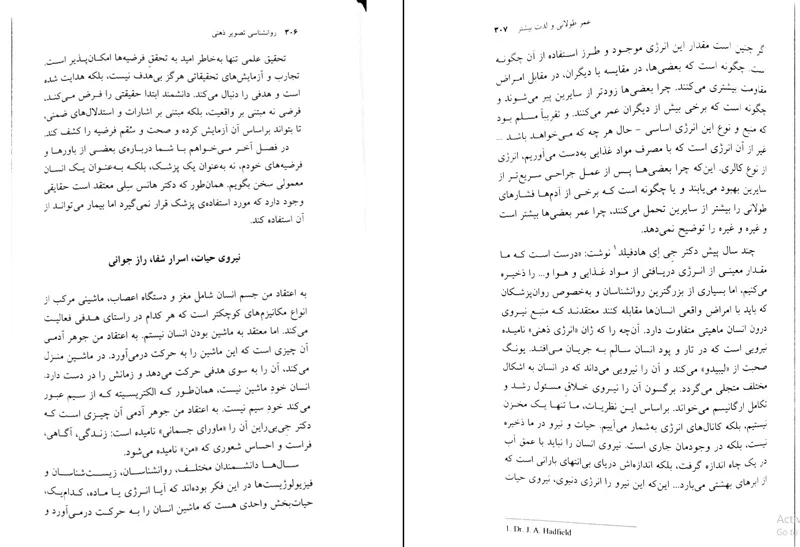 ۳۰۶ روانشناسی تصویر ذهنی
تحقیق علمی تنها به‌خاطر امید به تحققِ فرضیه‌ها امکان‌پذیر است.
تجارب و آزمایش‌های تحقیقاتی هرگز بی‌هدف نیست، بلکه هدایت شده
است و هدفی را دنبال می‌کند. دانشمند ابتدا حقیقتی را فرض می‌کند.
فرضی نه مبتنی بر واقعیت، بلکه مبتنی بر اشارات و استدلال‌های ضمنی،
تا بتواند براساس آن آزمایش کرده و صحت و سُقم فرضیه را کشف کند.
در فصل آخر می‌خواهم با شما درباره‌ی بعضی از باورها و
فرضیه‌های خودم، نه به‌عنوان یک پزشک، بلکه به‌عنوان یک انسان
معمولی سخن بگویم. همان‌طور که دکتر هانس سِلی معتقد است حقایقی
وجود دارد که مورد استفاده‌ی پزشک قرار نمی‌گیرد اما بیمار می‌تواند از
آن استفاده کند.
نیروی حیات، اسرار شفا، راز جوانی
به اعتقاد من جسم انسان شامل مغز و دستگاه اعصاب، ماشینی مرکب از
انواع مکانیزم‌های کوچکتر است که هر کدام در راستای هدفی فعالیت
می‌کند. اما معتقد به ماشین بودن انسان نیستم. به اعتقاد من جوهر آدمی
آن چیزی است که این ماشین را به حرکت درمی‌آورد. در ماشین منزل
می‌کند، آن را به سوی هدفی حرکت می‌دهد و زمانش را در دست دارد.
انسان خودِ ماشین نیست، همان‌طور که الکتریسیته که از سیم عبور
می‌کند خودِ سیم نیست. به اعتقاد من جوهر آدمی آن چیزی است که
دکتر جِی‌بی‌راین آن را «ماورای جسمانی» نامیده است: زندگی، آگاهی،
فراست و احساس شعوری که «من» نامیده می‌شود.
سال‌ها دانشمندان مختلف، روانشناسان، زیست‌شناسان و
فیزیولوژیست‌ها در این فکر بوده‌اند که آیا انرژی یا ماده، کدام‌یک،
حیات‌بخش واحدی هست که ماشین انسان را به حرکت درمی‌آورد و
عمر طولانی و لذت بیشتر ۳۰۷
گر چنین است مقدار این انرژی موجود و طرز استفاده از آن چگونه
است. چگونه است که بعضی‌ها، در مقایسه با دیگران، در مقابل امراض
مقاومت بیشتری می‌کنند. چرا بعضی‌ها زودتر از سایرین پیر می‌شوند و
چگونه است که برخی بیش از دیگران عمر می‌کنند. و تقریباً مسلم بود
که منبع و نوع این انرژی اساسی – حال هر چه که می‌خواهد باشد ...
غیر از آن انرژی است که با مصرف مواد غذایی به‌دست می‌آوریم، انرژی
از نوع کالری. این‌که چرا بعضی‌ها پس از عمل جراحی سریع‌تر از
سایرین بهبود می‌یابند و یا چگونه است که برخی از آدم‌ها فشارهای
طولانی را بیشتر از سایرین تحمل می‌کنند، چرا عمر بعضی‌ها بیشتر است
و غیره و غیره را توضیح نمی‌دهد.
چند سال پیش دکتر جِی اِی هادفیلد۱ نوشت: «درست است که ما
مقدار معینی از انرژی دریافتی از مواد غذایی و هوا و... را ذخیره
می‌کنیم، اما بسیاری از بزرگترین روانشناسان و به‌خصوص روان‌پزشکان
که باید با امراض واقعی انسان‌ها مقابله کنند معتقدند که منبع نیروی
درون انسان ماهیتی متفاوت دارد. آن‌چه را که ژان «انرژی ذهنی» نامیده
نیرویی است که در تار و پود انسان سالم به جریان می‌افتد. یونگ
صحبت از «لیبیدو» می‌کند و آن را نیرویی می‌داند که در انسان به اشکال
مختلف متجلی می‌گردد. برگسون آن را نیروی خلاقِ مسئول رشد و
تکامل ارگانیسم می‌خواند. براساس این نظریات، ما تنها یک مخزن
نیستیم، بلکه کانال‌های انرژی به‌شمار می‌آییم. حیات و نیرو در ما ذخیره
نیست، بلکه در وجودمان جاری است. نیروی انسان را نباید با عمق آب
در یک چاه اندازه گرفت، بلکه اندازه‌اش دریای بی‌انتهای بارانی است که
از ابرهای بهشتی می‌بارد... این‌که این نیرو را انرژی دنیوی، نیروی حیات
1. Dr. J. A. Hadfield
Activ
Go to